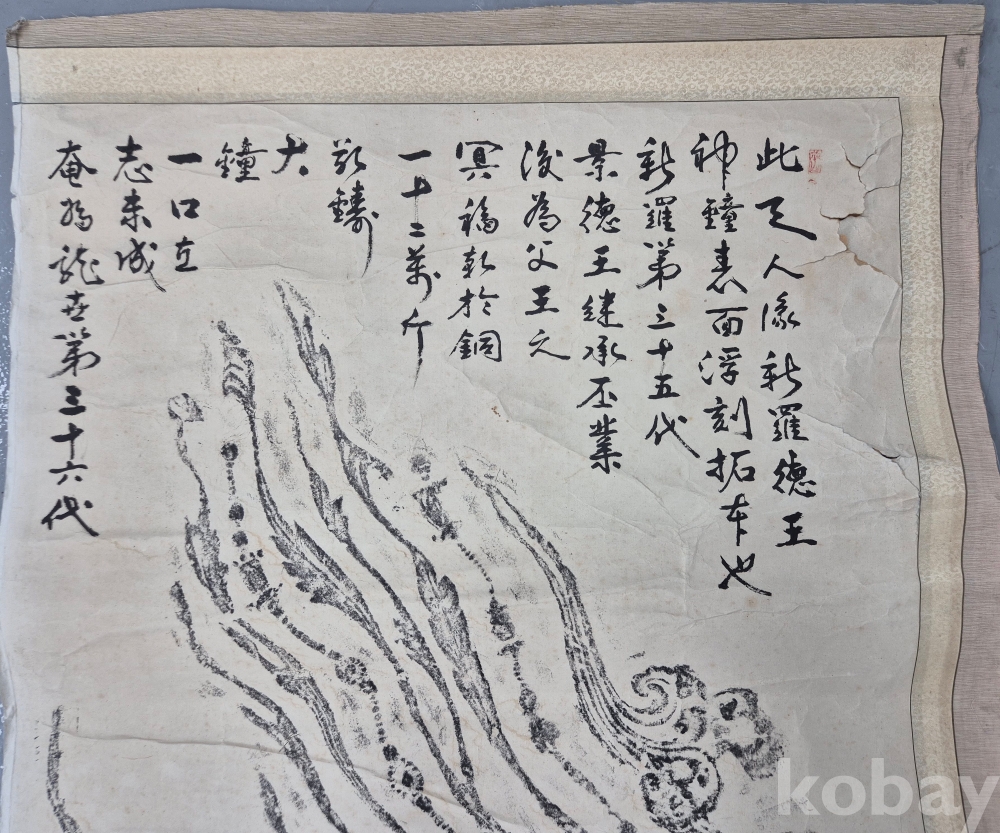 此天人像新羅德王
神鐘表面浮刻拓本也
新羅第三十五代
景德王継承丕業
後為父王之
冥福 於銅
一十二萬斤
欲鑄
大
鐘
一口立
志未成
奄 世第三十六代
kobay